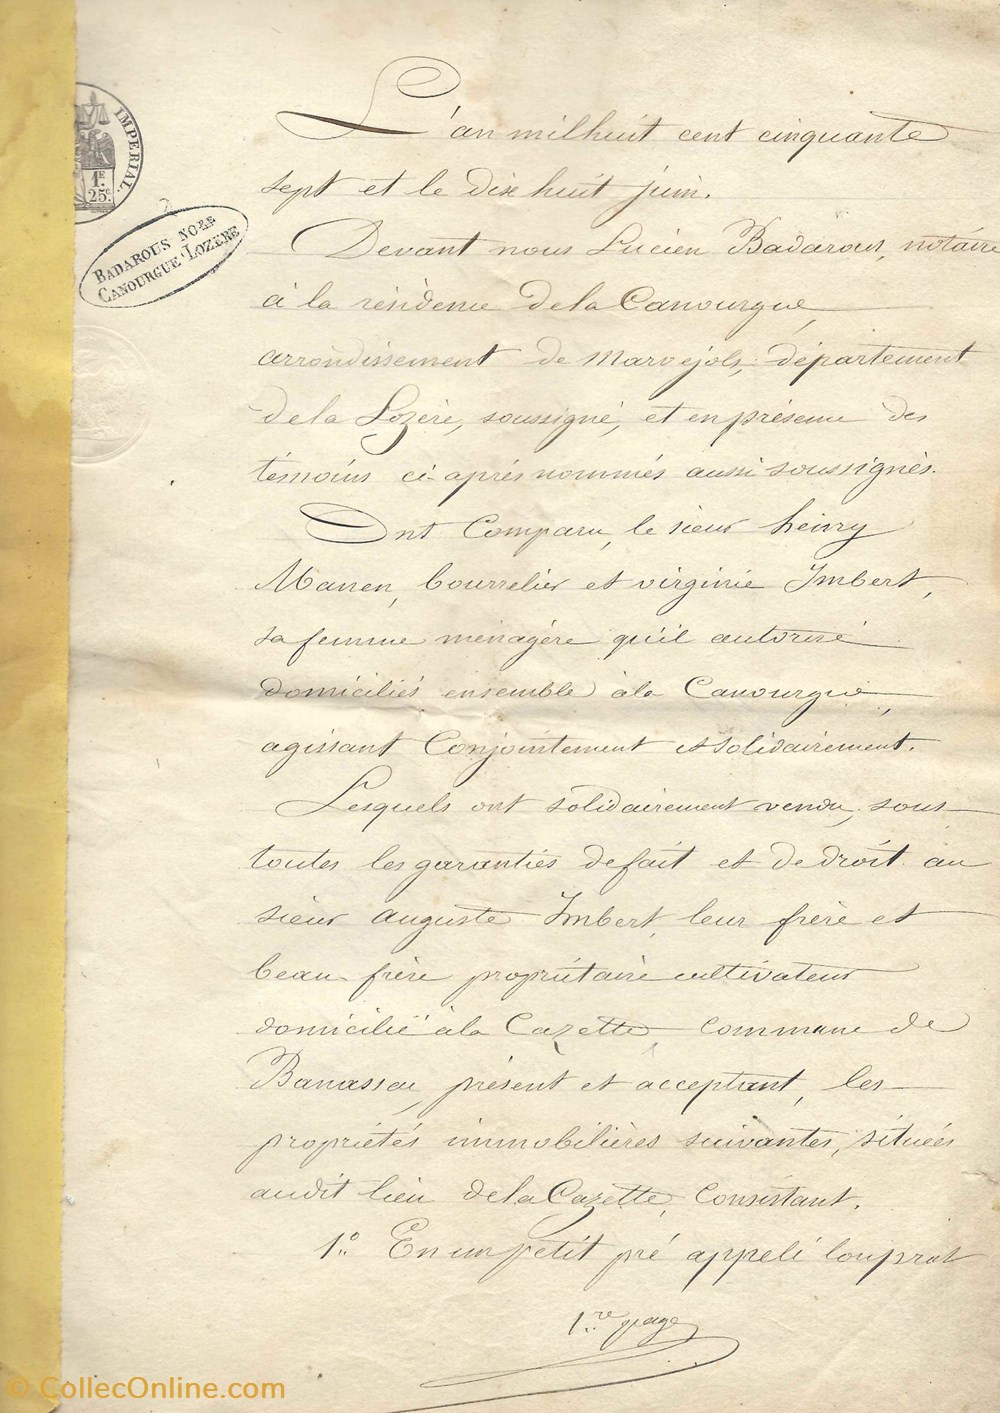 IMPERIAL.
1F
25c.
BADAROUS NORE
CANOURGUE·LOZERE
L'an mil huit cent cinquante
sept et le dix huit juin.
Devant nous Lucien Badarous, notaire
à la résidence de la Canourgue,
arrondissement de Marvejols, département
de la Lozère, soussigné, et en présence des
témoins ci-après nommés aussi soussignés.
Ont Comparu, le sieur heinry
Manen, bourrelier et virginie Imbert,
sa femme ménagère qu'il autorise
domiciliés ensemble à la Canourgue,
agissant Conjointement et solidairement.
Lesquels ont solidairement vendu, sous
toutes les garanties de fait et de droit au
sieur auguste Imbert, leur frère et
beau frère propriétaire cultivateur
domicilié à la Cazette, commune de
Banassac, présent et acceptant, les
propriétés immobilières suivantes, situées
audit lieu de la Cazette, Consistant.
1° En un petit pré appelé louprat
1re page
© CollecOnline.com